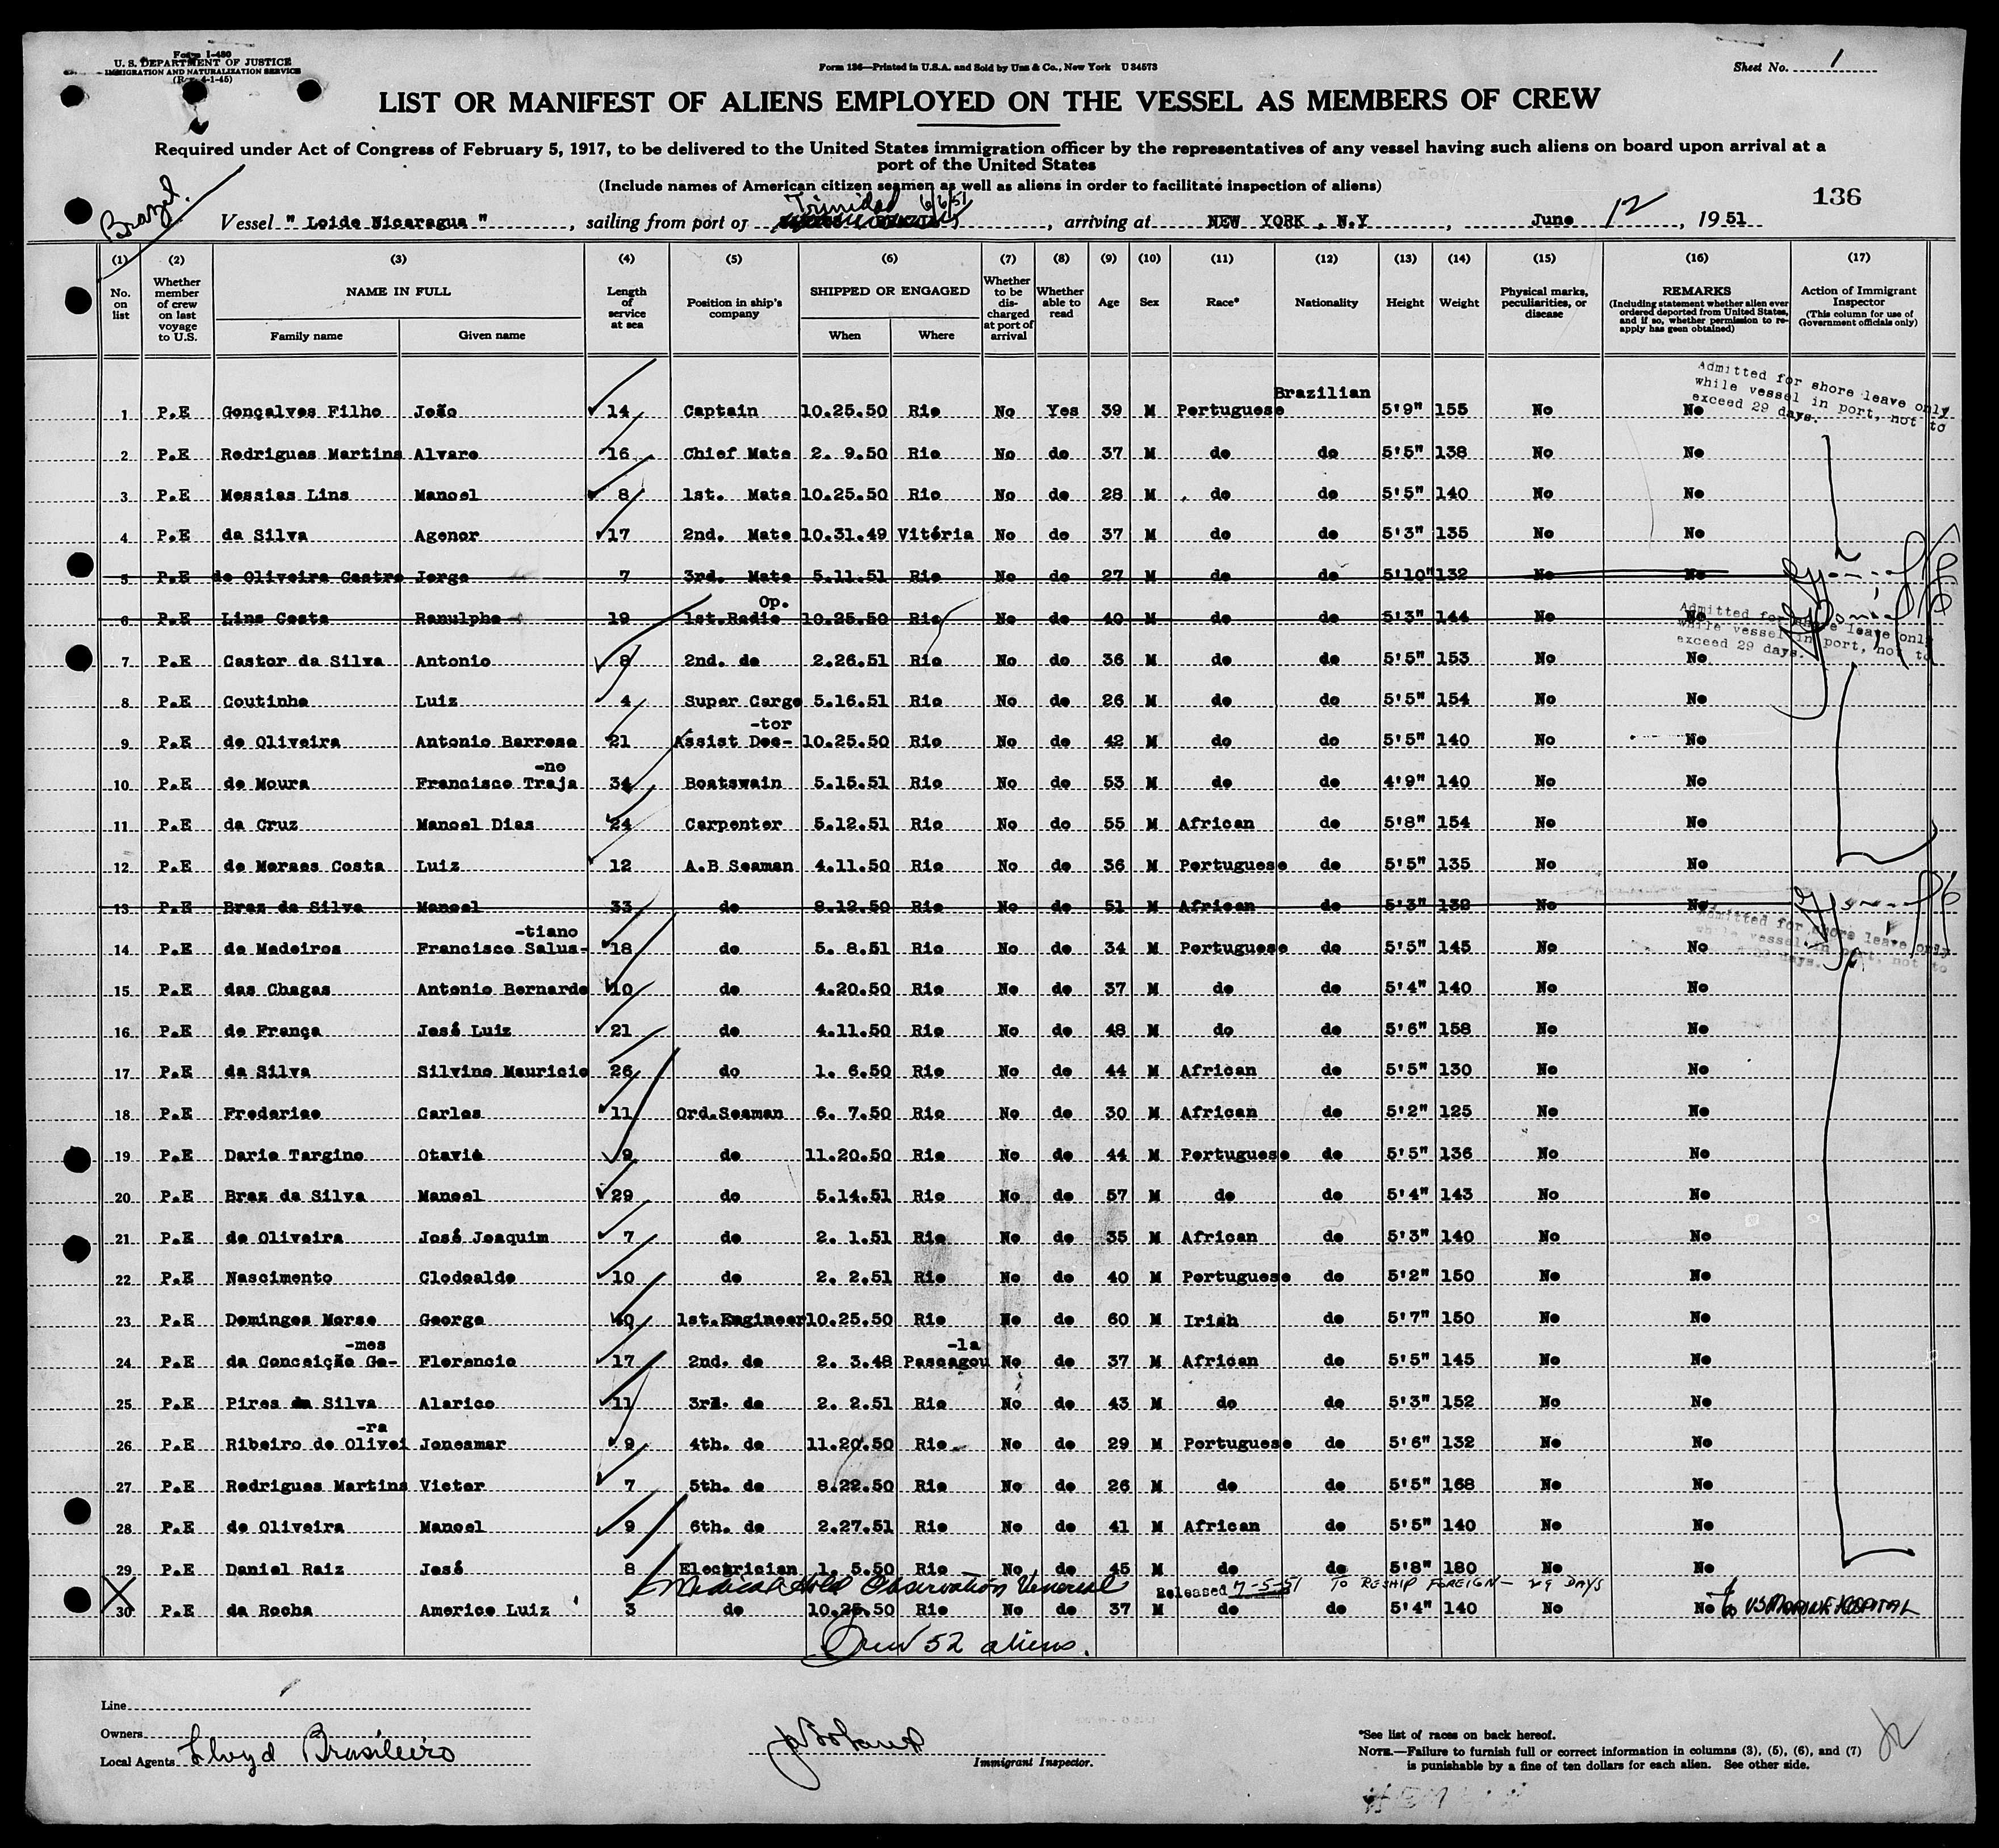 Form I-480
U. S. DEPARTMENT OF JUSTICE
IMMIGRATION AND NATURALIZATION SERVICE
(Rev. 4-1-45)
Form 136—Printed in U.S.A. and Sold by Unz & Co., New York U 34573
Sheet No. 1
LIST OR MANIFEST OF ALIENS EMPLOYED ON THE VESSEL AS MEMBERS OF CREW
Required under Act of Congress of February 5, 1917, to be delivered to the United States immigration officer by the representatives of any vessel having such aliens on board upon arrival at a
port of the United States
(Include names of American citizen seamen as well as aliens in order to facilitate inspection of aliens)
136
Brazil.
Trinidad 6/6/51
Vessel " Loide Nicaragua ", sailing from port of BRAZIL, arriving at NEW YORK , N.Y, June 12, 1951
(1) (2) (3) (4) (5) (6) (7) (8) (9) (10) (11) (12) (13) (14) (15) (16) (17)
No. on list
Whether member of crew on last voyage to U.S.
NAME IN FULL
Family name Given name
Length of service at sea
Position in ship's company
SHIPPED OR ENGAGED
When Where
Whether to be discharged at port of arrival
Whether able to read
Age
Sex
Race*
Nationality
Height
Weight
Physical marks, peculiarities, or disease
REMARKS
(Including statement whether alien ever ordered deported from United States, and if so, whether permission to reapply has been obtained)
Action of Immigrant Inspector
(This column for use of Government officials only)
Admitted for shore leave only
while vessel in port, not to
exceed 29 days.
Brazilian
1 P.E Gonçalves Filho João 14 Captain 10.25.50 Rio No Yes 39 M Portuguese 5'9" 155 No No
2 P.E Rodrigues Martins Alvaro 16 Chief Mate 2. 9.50 Rio No do 37 M do do 5'5" 138 No No
3 P.E Messias Lins Manoel 8 1st. Mate 10.25.50 Rio No do 28 M do do 5'5" 140 No No
4 P.E da Silva Agenor 17 2nd. Mate 10.31.49 Vitória No do 37 M do do 5'3" 135 No No
5 P.E de Oliveira Castro Jorge 7 3rd. Mate 5.11.51 Rio No do 27 M do do 5'10" 132 No No
Op.
6 P.E Lins Costa Ranulpho 19 1st.Radio 10.25.50 Rio No do 40 M do do 5'3" 144 No No
Admitted for shore leave only
while vessel in port, not to
exceed 29 days.
7 P.E Castor da Silva Antonio 8 2nd. do 2.26.51 Rio No do 36 M do do 5'5" 153 No No
8 P.E Coutinho Luiz 4 Super Cargo 5.16.51 Rio No do 26 M do do 5'5" 154 No No
-tor
9 P.E de Oliveira Antonio Barroso 21 Assist Doc- 10.25.50 Rio No do 42 M do do 5'5" 140 No No
-no
10 P.E de Moura Francisco Traja 34 Boatswain 5.15.51 Rio No do 53 M do do 4'9" 140 No No
11 P.E da Cruz Manoel Dias 24 Carpenter 5.12.51 Rio No do 55 M African do 5'8" 154 No No
12 P.E de Moraes Costa Luiz 12 A.B Seaman 4.11.50 Rio No do 36 M Portuguese do 5'5" 135 No No
13 P.E Braz da Silva Manoel 33 do 8.12.50 Rio No do 51 M African do 5'3" 138 No No
Admitted for shore leave only
while vessel in port, not to
days.
-tiano
14 P.E de Medeiros Francisco Salus- 18 do 5. 8.51 Rio No do 34 M Portuguese do 5'5" 145 No No
15 P.E das Chagas Antonio Bernardo 10 do 4.20.50 Rio No do 37 M do do 5'4" 140 No No
16 P.E de França José Luiz 21 do 4.11.50 Rio No do 48 M do do 5'6" 158 No No
17 P.E da Silva Silvino Mauricio 26 do 1. 6.50 Rio No do 44 M African do 5'5" 130 No No
18 P.E Frederico Carlos 11 Ord.Seaman 6. 7.50 Rio No do 30 M African do 5'2" 125 No No
19 P.E Dario Targino Otavio 9 do 11.20.50 Rio No do 44 M Portuguese do 5'5" 136 No No
20 P.E Braz da Silva Manoel 29 do 5.14.51 Rio No do 57 M do do 5'4" 143 No No
21 P.E de Oliveira José Joaquim 7 do 2. 1.51 Rio No do 35 M African do 5'3" 140 No No
22 P.E Nascimento Clodoaldo 10 do 2. 2.51 Rio No do 40 M Portuguese do 5'2" 150 No No
23 P.E Domingos Morse George 40 1st.Engineer 10.25.50 Rio No do 60 M Irish do 5'7" 150 No No
-mes -la
24 P.E da Conceição Go- Florencio 17 2nd. do 2. 3.48 Pascagou No do 37 M African do 5'5" 145 No No
25 P.E Pires da Silva Alarico 11 3rd. do 2. 2.51 Rio No do 43 M do do 5'3" 152 No No
-ra
26 P.E Ribeiro de Olivei Jonesmar 9 4th. do 11.20.50 Rio No do 29 M Portuguese do 5'6" 132 No No
27 P.E Rodrigues Martins Victor 7 5th. do 8.22.50 Rio No do 26 M do do 5'5" 168 No No
28 P.E de Oliveira Manoel 9 6th. do 2.27.51 Rio No do 41 M African do 5'5" 140 No No
29 P.E Daniel Raiz José 8 Electrician 1. 5.50 Rio No do 45 M do do 5'8" 180 No No
Medical Hold Observation Venereal Released 7-5-51 TO RESHIP FOREIGN — 29 DAYS
30 P.E da Rocha Americo Luiz 3 do 10.25.50 Rio No do 37 M do do 5'4" 140 No No to US MARINE HOSPITAL
Crew 52 aliens.
Line
Owners
Local Agents Lloyd Brasileiro
Immigrant Inspector.
*See list of races on back hereof.
NOTE.—Failure to furnish full or correct information in columns (3), (5), (6), and (7)
is punishable by a fine of ten dollars for each alien. See other side.